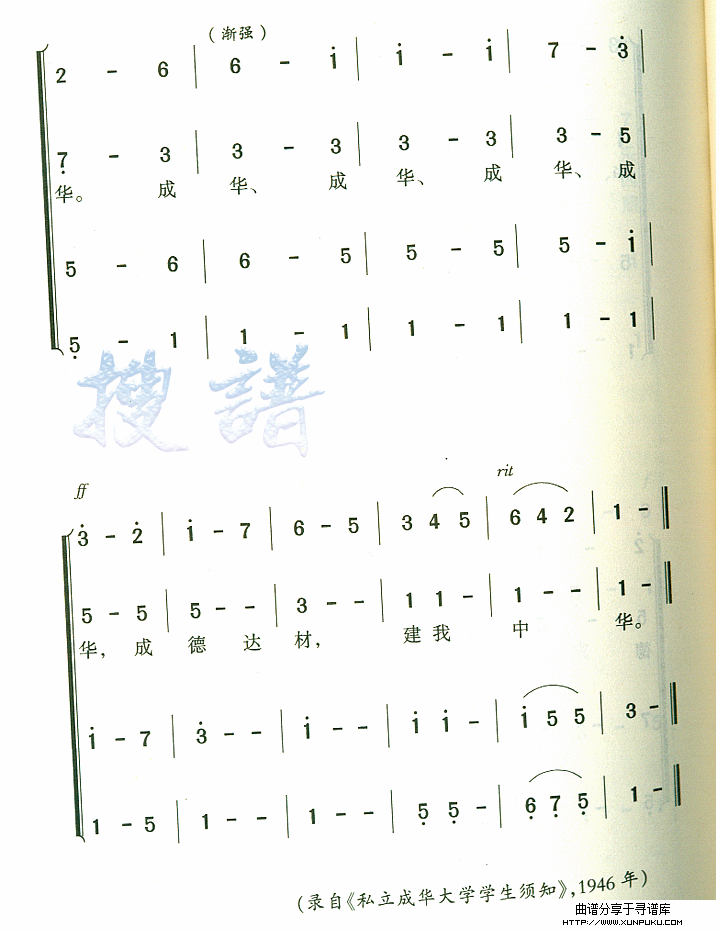 （渐强）
2 - 6 | 6 - i̇ | i̇ - i̇ | 7 - 3̇ |
7̣ - 3 | 3 - 3 | 3 - 3 | 3 - 5 |
华。 成 华、 成 华、 成 华、 成
5 - 6 | 6 - 5 | 5 - 5 | 5 - i̇ |
5̣ - 1 | 1 - 1 | 1 - 1 | 1 - 1 |
搜譜
ff rit
3̇ - 2̇ | i̇ - 7 | 6 - 5 | 3 4 5 | 6 4 2 | 1 - ‖
5 - 5 | 5 - - | 3 - - | 1 1 - | 1 - - | 1 - ‖
华， 成 德 达 材， 建 我 中 华。
i̇ - 7 | 3̇ - - | i̇ - - | i̇ i̇ - | i̇ 5 5 | 3 - ‖
1 - 5 | 1 - - | 1 - - | 5̣ 5̣ - | 6̣ 7̣ 5̣ | 1 - ‖
（录自《私立成华大学学生须知》，1946 年）
曲谱分享于寻谱库
HTTP://WWW.XUNPUKU.COM